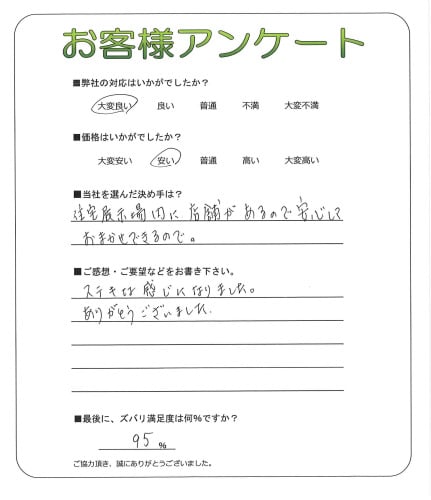 お客様アンケート
■弊社の対応はいかがでしたか?
大変良い 良い 普通 不満 大変不満
■価格はいかがでしたか?
大変安い 安い 普通 高い 大変高い
■当社を選んだ決め手は?
住宅展示場内に店舗があるので安心して
おまかせできるので。
■ご感想・ご要望などをお書き下さい。
ステキな感じになりました。
ありがとうございました.
■最後に、ズバリ満足度は何%ですか?
95 %
ご協力頂き、誠にありがとうございました。